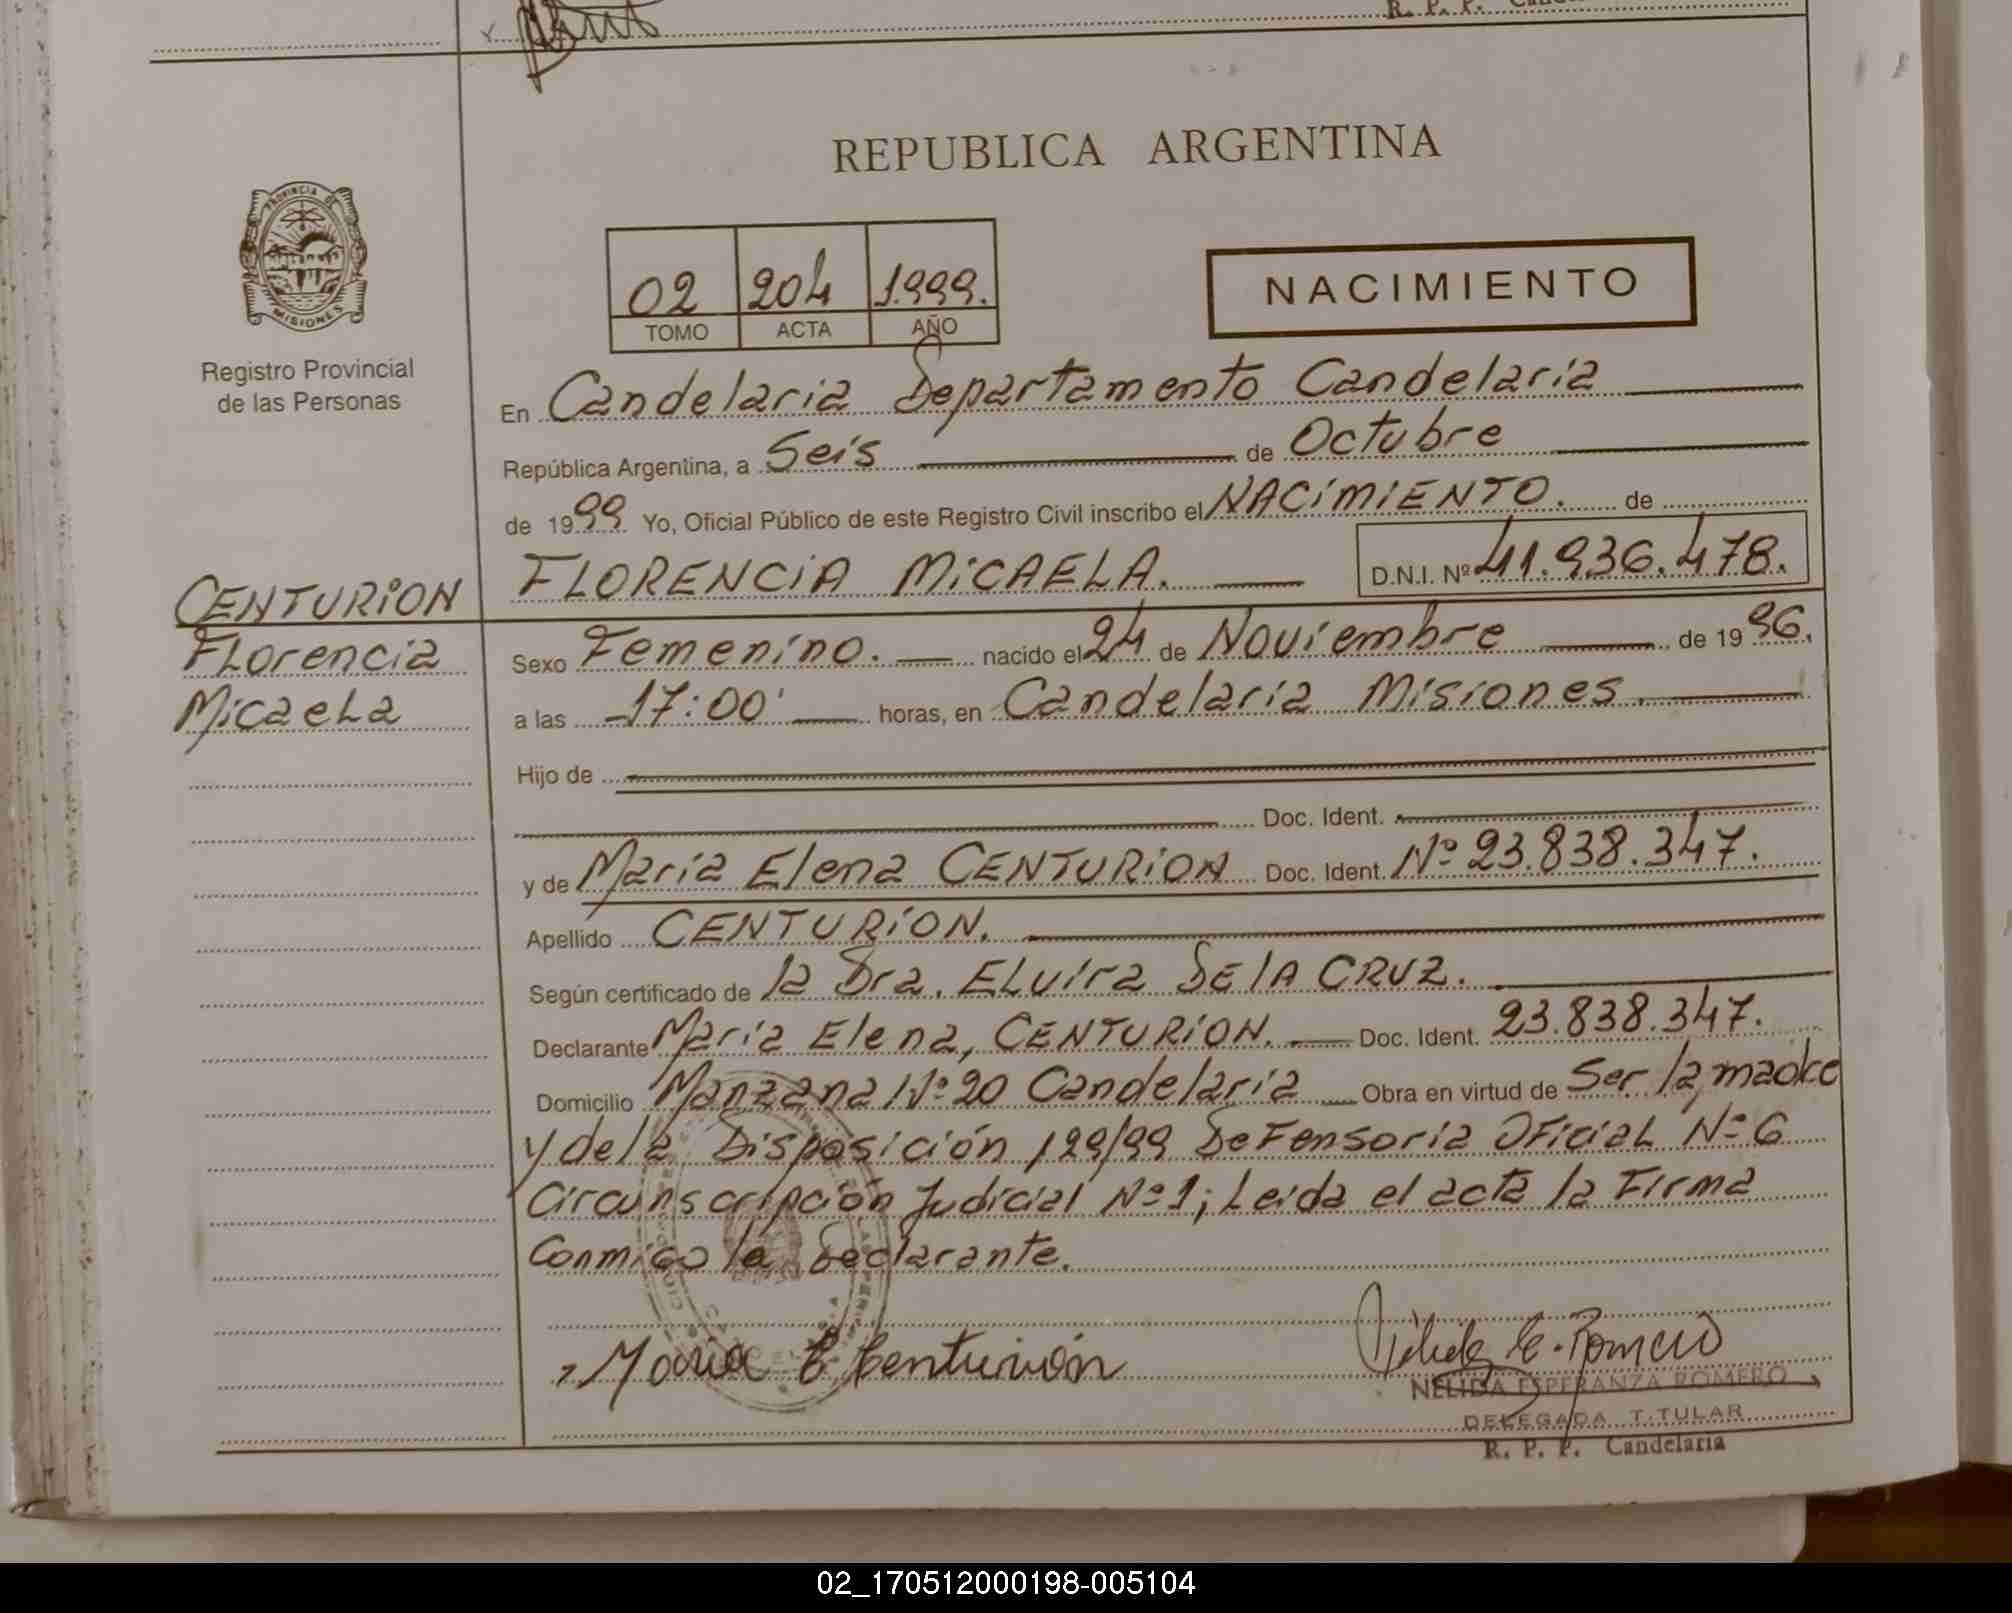 R. P. P.
REPUBLICA ARGENTINA
PROVINCIA DE
MISIONES
Registro Provincial
de las Personas
02 204 1.999.
TOMO ACTA AÑO
NACIMIENTO
En Candelaria Departamento Candelaria
República Argentina, a Seis de Octubre
de 1999 Yo, Oficial Público de este Registro Civil inscribo el NACIMIENTO. de
FLORENCIA MICAELA. D.N.I. Nº 41.936.478.
CENTURION
Florencia
Micaela
Sexo Femenino. nacido el 24 de Noviembre de 1996.
a las 17:00' horas, en Candelaria Misiones.
Hijo de
Doc. Ident.
y de María Elena CENTURION Doc. Ident. Nº 23.838.347.
Apellido CENTURION.
Según certificado de la Dra. ELvira DE lA CRUZ.
Declarante María Elena, CENTURION. Doc. Ident. 23.838.347.
Domicilio Manzana Nº 20 Candelaria Obra en virtud de Ser la madre
y de la Disposición 199/99 Defensoria Oficial Nº 6
Circunscripción Judicial Nº 1; Leida el acta la Firma
Conmigo la Declarante.
Maria E. Centurión
Nelida E. Romero
NELIDA ESPERANZA ROMERO
DELEGADA TITULAR
R. P. P. Candelaria
02_170512000198-005104